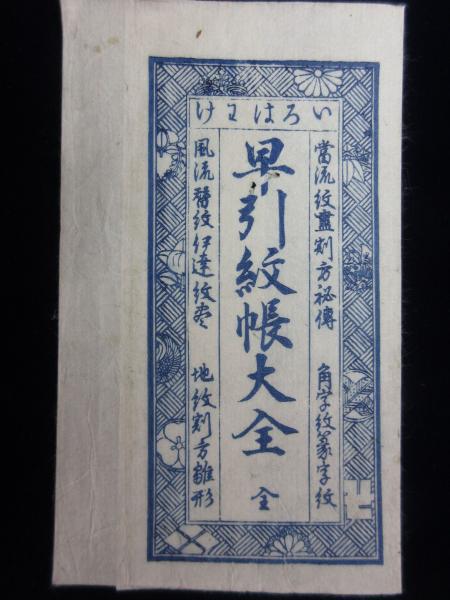 いろはわけ
當流紋盡割方祕傳 角字紋篆字紋
早引紋帳大全 全
風流替紋伊達紋盡 地紋割方雛形